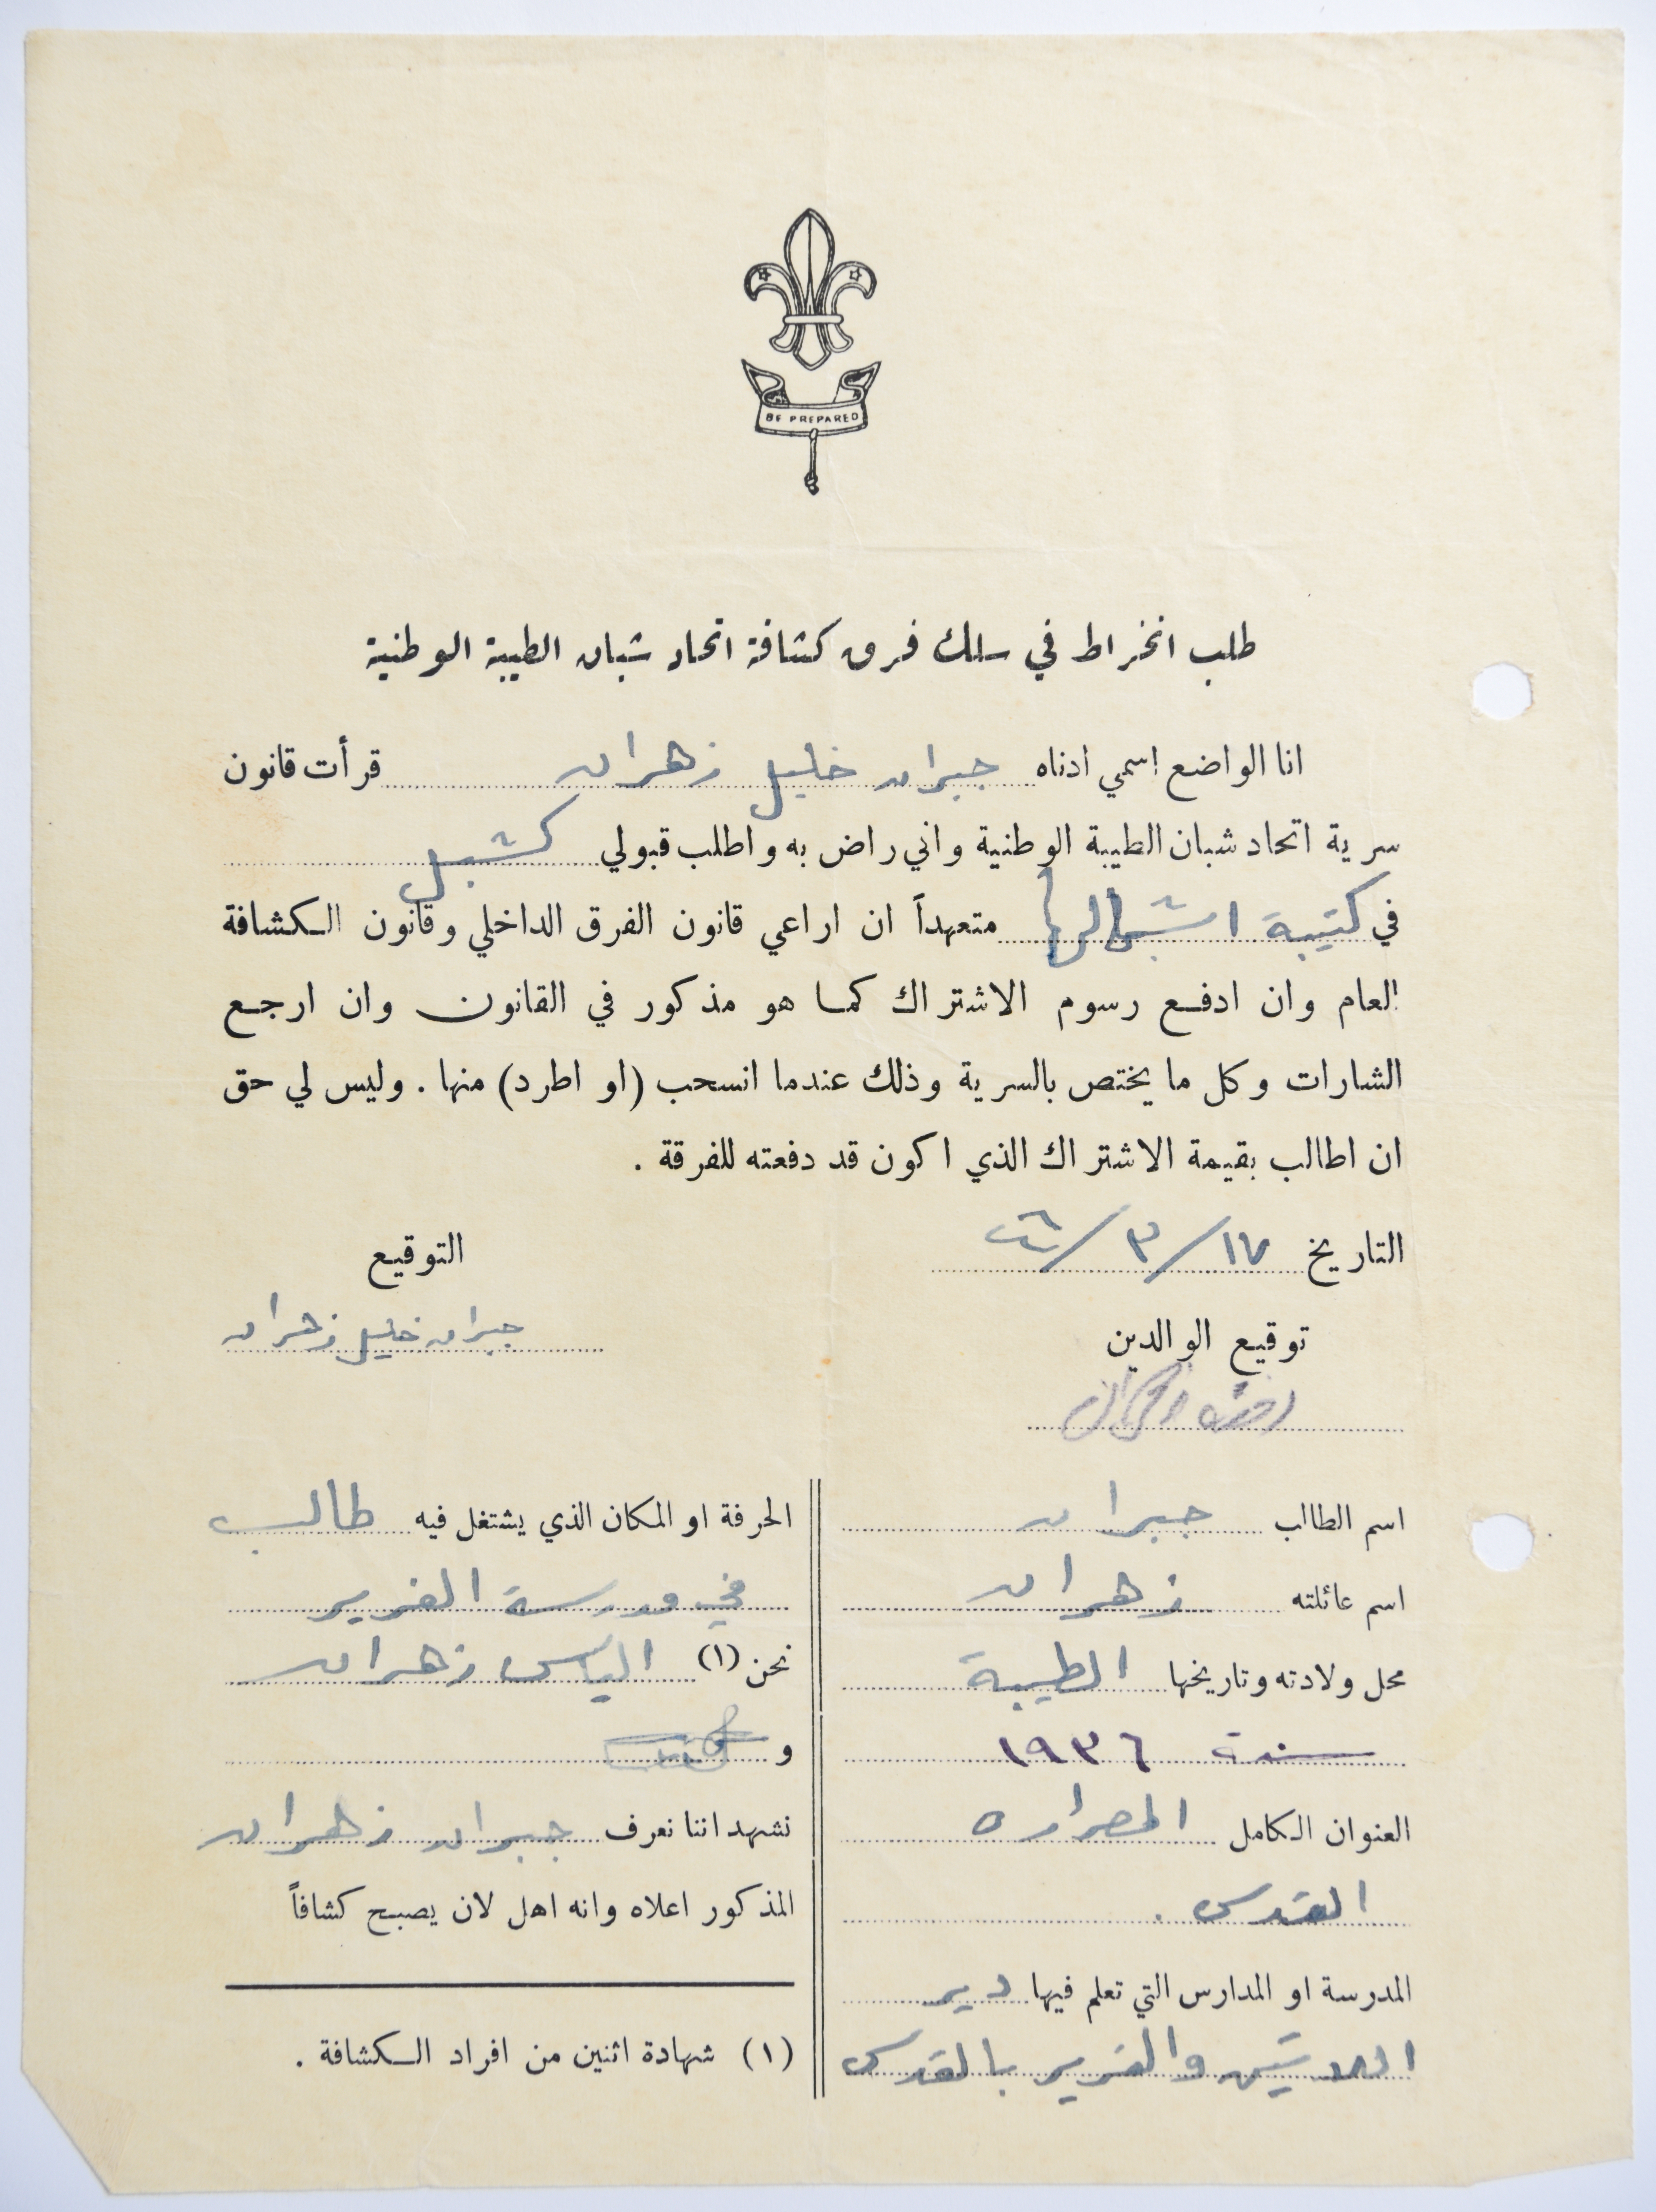 BE PREPARED
طلب انخراط في سلك فرق كشافة اتحاد شبان الطيبة الوطنية
انا الواضع اسمي ادناه جبران خليل زهران قرأت قانون
سرية اتحاد شبان الطيبة الوطنية واني راض به واطلب قبولي كشبل
في كتيبة اشبالها متعهداً ان اراعي قانون الفرق الداخلي وقانون الكشافة
العام وان ادفع رسوم الاشتراك كما هو مذكور في القانون وان ارجع
الشارات وكل ما يختص بالسرية وذلك عندما انسحب (او اطرد) منها . وليس لي حق
ان اطالب بقيمة الاشتراك الذي اكون قد دفعته للفرقة .
التاريخ ١٧/٣/
التوقيع
جبران خليل زهران
توقيع الوالدين
اسم الطالب جبران
اسم عائلته زهران
محل ولادته وتاريخها الطيبة
سنة ١٩٣٦
العنوان الكامل المصراره
القدس .
المدرسة او المدارس التي تعلم فيها دير
والفرير بالقدس
الحرفة او المكان الذي يشتغل فيه طالب
في مدرسة الفرير
نحن (١) الياس زهران
و
نشهد اننا نعرف جبران زهران
المذكور اعلاه وانه اهل لان يصبح كشافاً
(١) شهادة اثنين من افراد الكشافة .